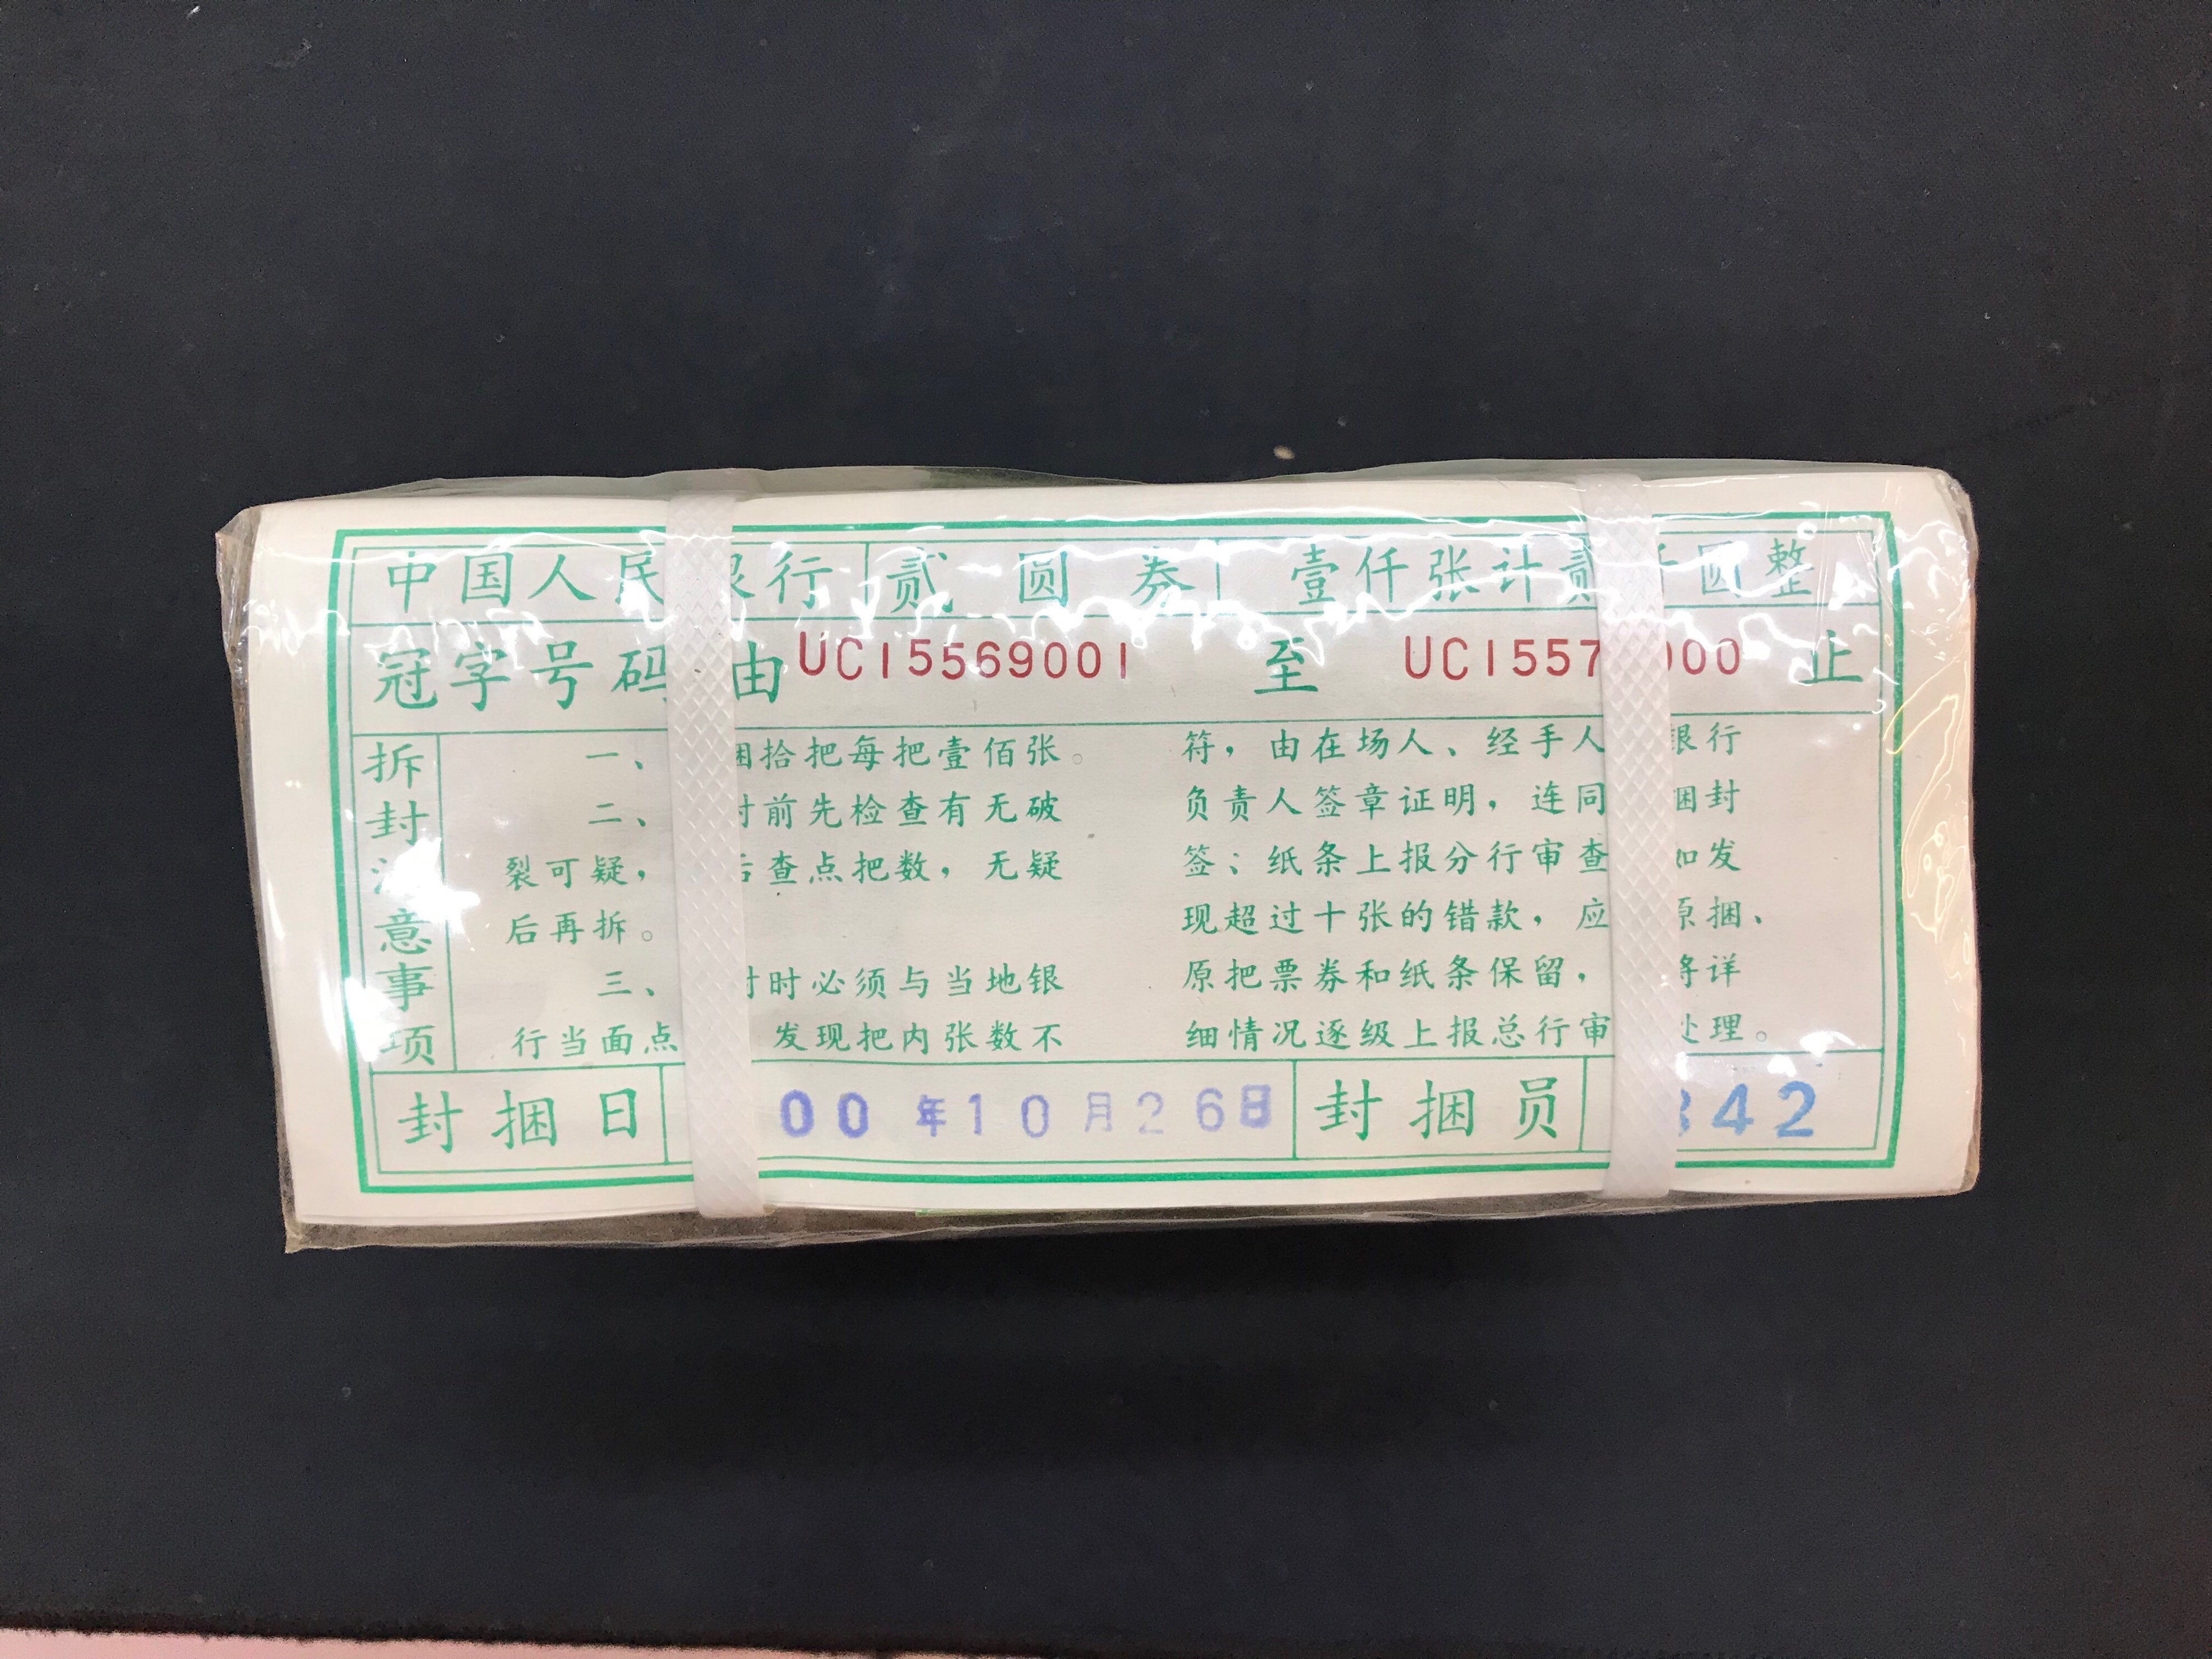 中国人民银行 贰圆券 壹仟张计贰仟圆整
冠字号码 由 UC15569001 至 UC1557 000 止
拆封注意事项
一、 捆拾把每把壹佰张。
二、 封前先检查有无破
裂可疑, 后查点把数,无疑
后再拆。
三、 封时必须与当地银
行当面点 发现把内张数不
符,由在场人、经手人 银行
负责人签章证明,连同 捆封
签;纸条上报分行审查 如发
现超过十张的错款,应 原捆、
原把票券和纸条保留, 将详
细情况逐级上报总行审 处理。
封捆日 00年10月26日 封捆员 342